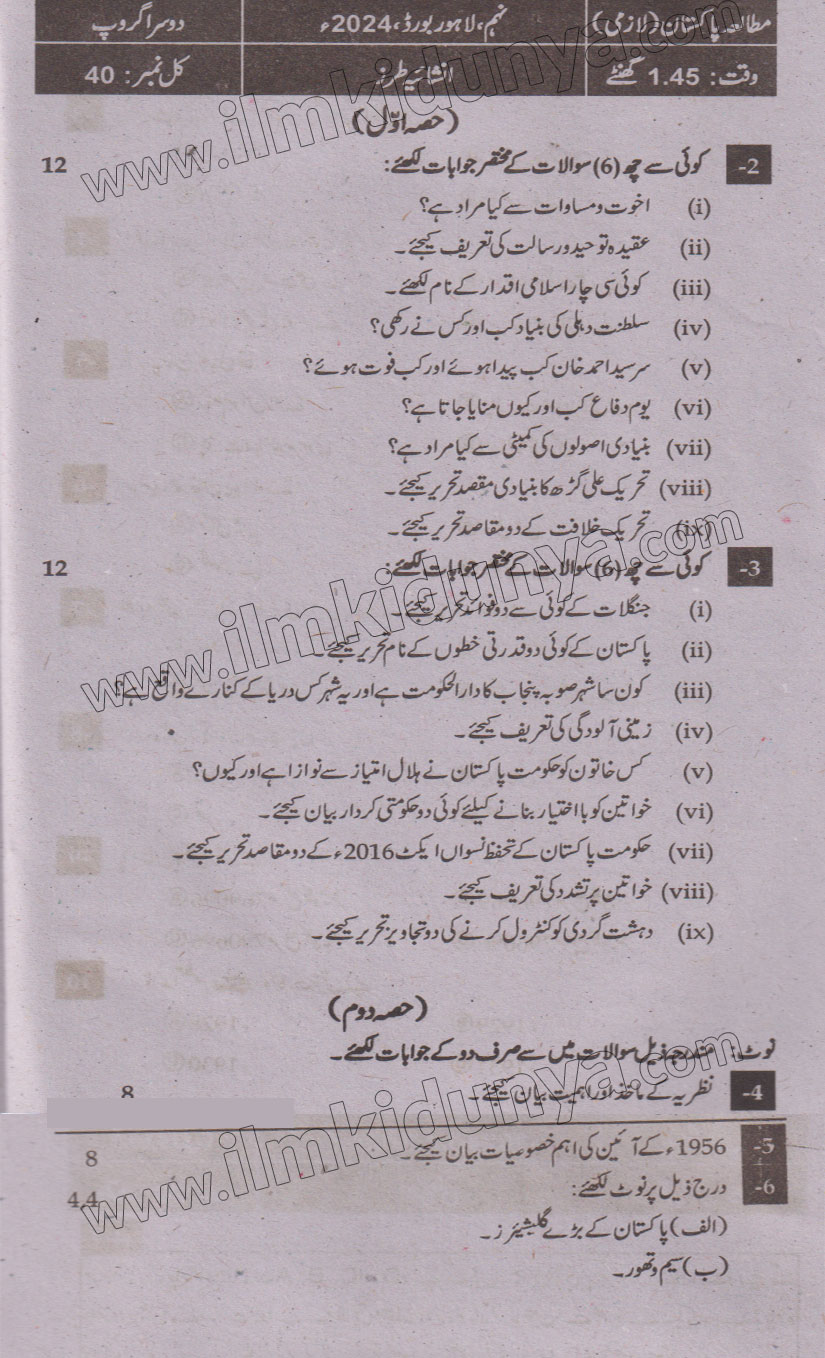 مطالعہ پاکستان (لازمی) نہم، لاہور بورڈ، 2024ء دوسرا گروپ
وقت: 1.45 گھنٹے انشائیہ طرز کل نمبر: 40
(حصہ اوّل)
2- کوئی سے چھ (6) سوالات کے مختصر جوابات لکھئے: 12
(i) اخوت و مساوات سے کیا مراد ہے؟
(ii) عقیدہ توحید و رسالت کی تعریف کیجئے۔
(iii) کوئی سی چار اسلامی اقدار کے نام لکھئے۔
(iv) سلطنت دہلی کی بنیاد کب اور کس نے رکھی؟
(v) سر سید احمد خان کب پیدا ہوئے اور کب فوت ہوئے؟
(vi) یوم دفاع کب اور کیوں منایا جاتا ہے؟
(vii) بنیادی اصولوں کی کمیٹی سے کیا مراد ہے؟
(viii) تحریک علی گڑھ کا بنیادی مقصد تحریر کیجئے۔
(ix) تحریک خلافت کے دو مقاصد تحریر کیجئے۔
3- کوئی سے چھ (6) سوالات کے مختصر جوابات لکھئے: 12
(i) جنگلات کے کوئی سے دو فوائد تحریر کیجئے۔
(ii) پاکستان کے کوئی دو قدرتی خطوں کے نام تحریر کیجئے۔
(iii) کون سا شہر صوبہ پنجاب کا دارالحکومت ہے اور یہ شہر کس دریا کے کنارے واقع ہے؟
(iv) زمینی آلودگی کی تعریف کیجئے۔
(v) کس خاتون کو حکومت پاکستان نے ہلال امتیاز سے نوازا ہے اور کیوں؟
(vi) خواتین کو با اختیار بنانے کیلئے کوئی دو حکومتی کردار بیان کیجئے۔
(vii) حکومت پاکستان کے تحفظ نسواں ایکٹ 2016ء کے دو مقاصد تحریر کیجئے۔
(viii) خواتین پر تشدد کی تعریف کیجئے۔
(ix) دہشت گردی کو کنٹرول کرنے کی دو تجاویز تحریر کیجئے۔
(حصہ دوم)
نوٹ: مندرجہ ذیل سوالات میں سے صرف دو کے جوابات لکھئے۔
4- نظریہ کے ماخذ اور اہمیت بیان کیجئے۔ 8
5- 1956ء کے آئین کی اہم خصوصیات بیان کیجئے۔ 8
6- درج ذیل پر نوٹ لکھئے: 4,4
(الف) پاکستان کے بڑے گلیشیئرز۔
(ب) سیم و تھور۔
www.ilmkidunya.com
www.ilmkidunya.com
www.ilmkidunya.com